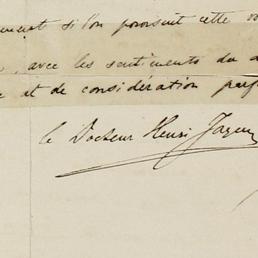 si l'on poursuit cette
, avec les sentiments du
et de considération
le Docteur Henri